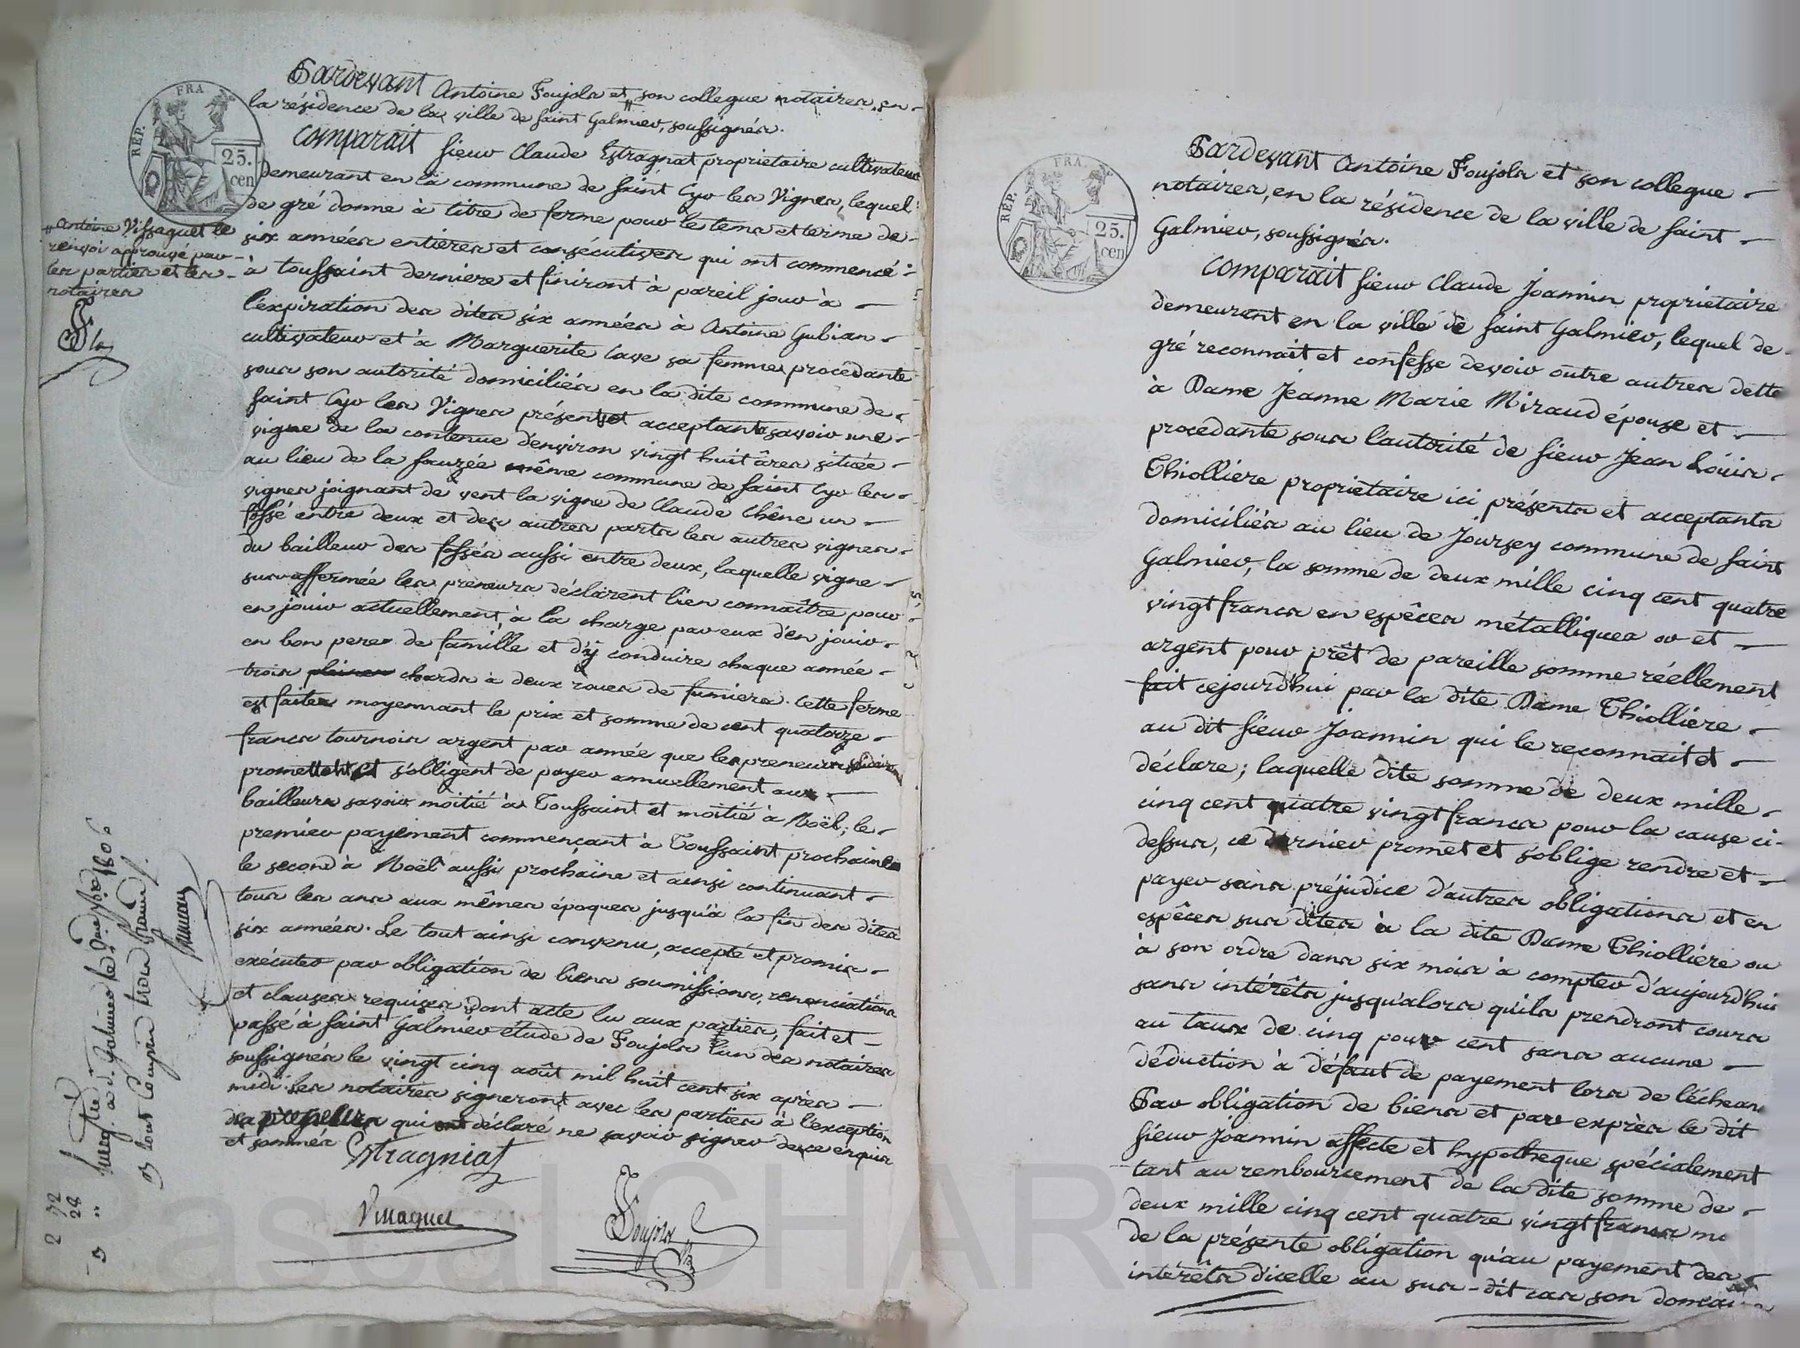 Pardevant Antoine Foujols et " son collegue notaires, en
la résidence de la ville de saint Galmier, soussignés.
Comparait sieur Claude Estragnat proprietaire cultivateur
demeurant en la commune de saint Cyr les Vignes, lequel
de gré donne à titre de ferme pour le tems et terme de
six années entieres et consécutives qui ont commencé
à toussaint derniere et finiront à pareil jour à
l'expiration des dites six années à Antoine Gubian
cultivateur et à Marguerite Cave sa femme procédante
sous son autorité domiciliés en la dite commune de
saint Cyr les Vignes présents et acceptants savoir une
vigne de la contenue d'environ vingt huit âres située
au lieu de la même commune de saint Cyr les
vignes joignant de vent la vigne de Claude Chêne un
fossé entre deux et des autres parts les autres vignes
du bailleur des fossés aussi entre deux, laquelle vigne
sus affermée les preneurs déclarent bien connaître pour
en jouir actuellement, à la charge par eux d'en jouir
en bon pere de famille et d'y conduire chaque année
trois chards à deux roues de fumiers. Cette ferme
est faite moyennant le prix et somme de cent quatorze
francs tournois argent par année que les preneurs solidaires
promettent et s'obligent de payer annuellement aux
bailleurs savoir moitié à Toussaint et moitié à Noël; le
premier payement commençant à Toussaint prochaine
le second à Noël aussi prochaine et ainsi continuant
tous les ans aux mêmes époques jusqu'à la fin des dites
six années. Le tout ainsi convenu, accepté et promis
exécuter par obligation de biens soumissions, renonciations
et clauses requises, dont acte lu aux parties, fait et
passé à saint Galmier étude de Foujols l'un des notaires
soussignés le vingt cinq août mil huit cent six après
midi. les notaires signeront avec les parties à l'exception
des qui ont déclaré ne savoir signer de ce enquis
et sommés
Estragniat
Vissaguet
Foujols
" Antoine Vissaguet le
renvoi approuvé par
les parties et les
notaires
REP. FRA
25.
cen
Pardevant Antoine Foujols et son collegue
notaires, en la résidence de la ville de saint
Galmier, soussignés.
Comparait sieur Claude Joannin proprietaire
demeurant en la ville de saint Galmier, lequel de
gré reconnait et confesse devoir outre autres dette
à Dame Jeanne Marie Miraud épouse et
procédante sous l'autorité de sieur Jean Loüis
Thiolliere proprietaire ici présents et acceptants
domiciliés au lieu de Joursey commune de saint
Galmier, la somme de deux mille cinq cent quatre
vingt francs en espêces métalliques or et
argent pour prêt de pareille somme réellement
fait cejourd'hui par la dite Dame Thiolliere
au dit sieur Joannin qui le reconnait et
déclare; laquelle dite somme de deux mille
cinq cent quatre vingt francs pour la cause ci-
dessus, ce dernier promet et s'oblige rendre et
payer sans préjudice d'autres obligations et en
espêces sus dites à la dite Dame Thiolliere ou
à son ordre dans six mois à compter d'aujourd'hui
sans intérêts jusqu'alors qu'ils prendront cours
au taux de cinq pour cent sans aucune
déduction à défaut de payement lors de l'échean
Par obligation de biens et par exprès le dit
sieur Joannin affecte et hypotheque spécialement
tant au remboursement de la dite somme de
deux mille cinq cent quatre vingt francs
de la présente obligation qu'au payement des
intérêts d'icelle au sus-dit cas son
REP. FRA.
25.
cen
Pascal CHAR